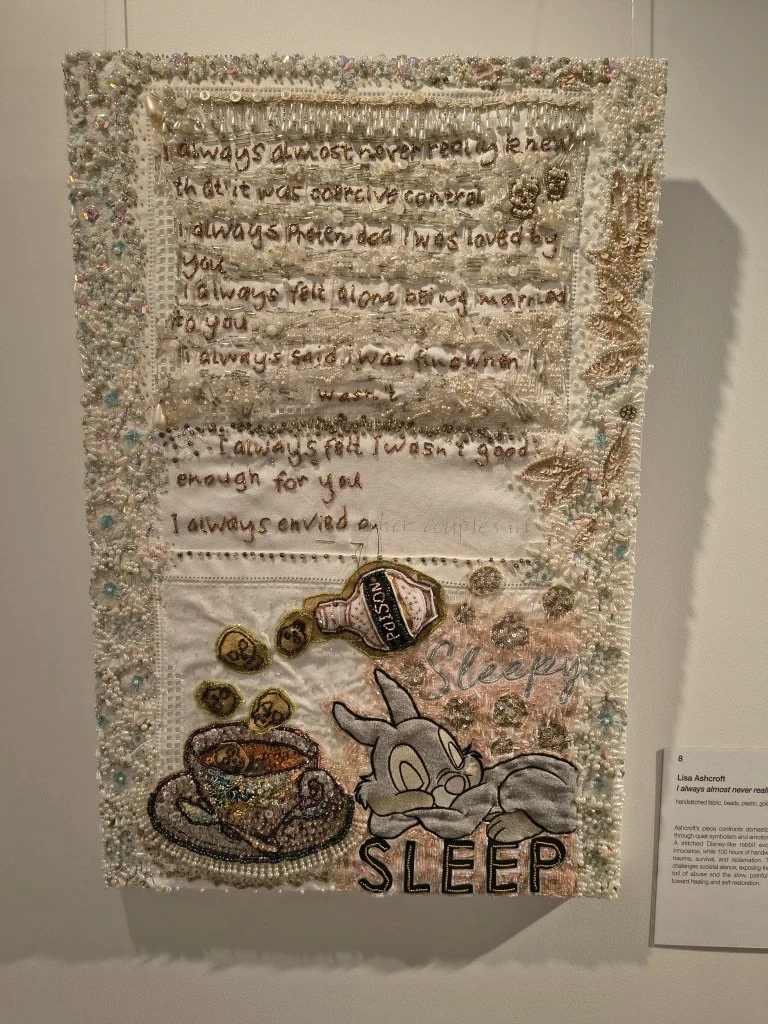 I always almost never really knew
that it was coercive control
I always Pretended I was loved by
you
I always felt alone being married
to you
I always said i was fine when I
wasn't
I always felt I wasn't good
enough for you
I always envied other couples in
POISON
Sleepy
SLEEP
8
Lisa Ashcroft
I always almost never reall
handstitched fabric, beads, plastic, gol
Ashcroft's piece confronts domesti
through quiet symbolism and emotion
A stitched Disney-like rabbit evo
innocence, while 100 hours of handw
trauma, survival, and reclamation. T
challenges societal silence, exposing the
toll of abuse and the slow, painful
toward healing and self-restoration.